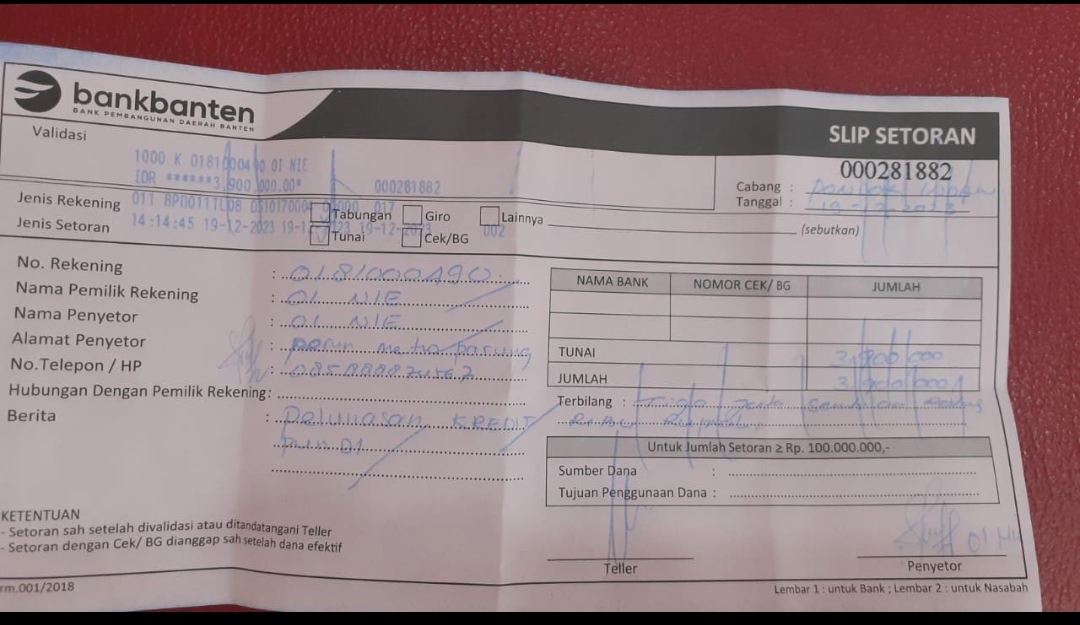 bankbanten
BANK PEMBANGUNAN DAERAH BANTEN
SLIP SETORAN
000281882
Validasi
1000 K 0181000490 OI NIE
IDR ******3,900,000.00* 000281882
Cabang :
Tanggal : 19-12-2023
Jenis Rekening Tabungan Giro Lainnya
(sebutkan)
14:14:45 19-12-2023 19-12-2023 19-12-2023 002
Jenis Setoran Tunai Cek/BG
No. Rekening : 0181000490
Nama Pemilik Rekening : OI NIE
Nama Penyetor : OI NIE
Alamat Penyetor : parung
No.Telepon / HP :
Hubungan Dengan Pemilik Rekening:
Berita : Pelunasan KREDIT
NAMA BANK NOMOR CEK/ BG JUMLAH
TUNAI 3,900,000
JUMLAH 3,900,000
Terbilang : Tiga Juta Sembilan Ratus
Ribu Rupiah
Untuk Jumlah Setoran ≥ Rp. 100.000.000,-
Sumber Dana :
Tujuan Penggunaan Dana :
KETENTUAN
- Setoran sah setelah divalidasi atau ditandatangani Teller
- Setoran dengan Cek/ BG dianggap sah setelah dana efektif
Teller
Penyetor
rm.001/2018
Lembar 1 : untuk Bank ; Lembar 2 : untuk Nasabah